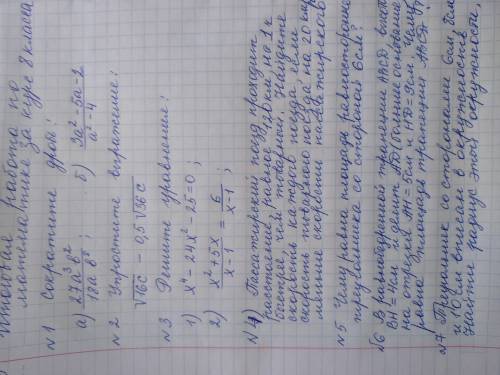 Итоговая работа по
математике за курс 8 класса
N1 Сократите дробь:
а) 27a³b² / 18ab³ ; б) 3a²-5a-2 / a²-4
N2 Упростите выражение:
√16c - 0,5√36c
N3 Решите уравнения:
1) x⁴-24x²-25=0;
2) x²+5x / x-1 = 6 / x-1 ;
N4) Пассажирский поезд проходит
расстояние, равное на 1ч
быстрее чем товарный. Найдите
скорость каждого поезда, если
скорость товарного поезда на 20 км/
меньше скорости пассажирского
N5 Чему равна площадь равностороннего
треугольника со стороной 6см?
N6 В равнобедренной трапеции ABCD, высота
BH=4см и делит AD (большее основание
на отрезки AH=5см и HD=9см. Чему
равна площадь трапеции ABCD?
N7 Треугольник со сторонами 6см, 8см
и 10см вписан в окружность
Найти радиус этой окружности,